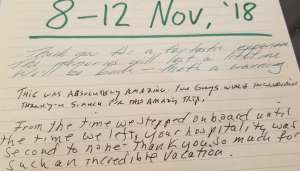 8-12 Nov, '18
Thank you for a fantastic experience
the memories will last a lifetime
We'll be back - that's a warning
THIS WAS ABSOLUTELY AMAZING. YOU GUYS WERE INCREDIBLE
THANK YOU SO MUCH FOR THIS AMAZING TRIP.
From the time we stepped onboard until
the time we left, your hospitality was
second to none. Thank you so much for
such an incredible vacation.